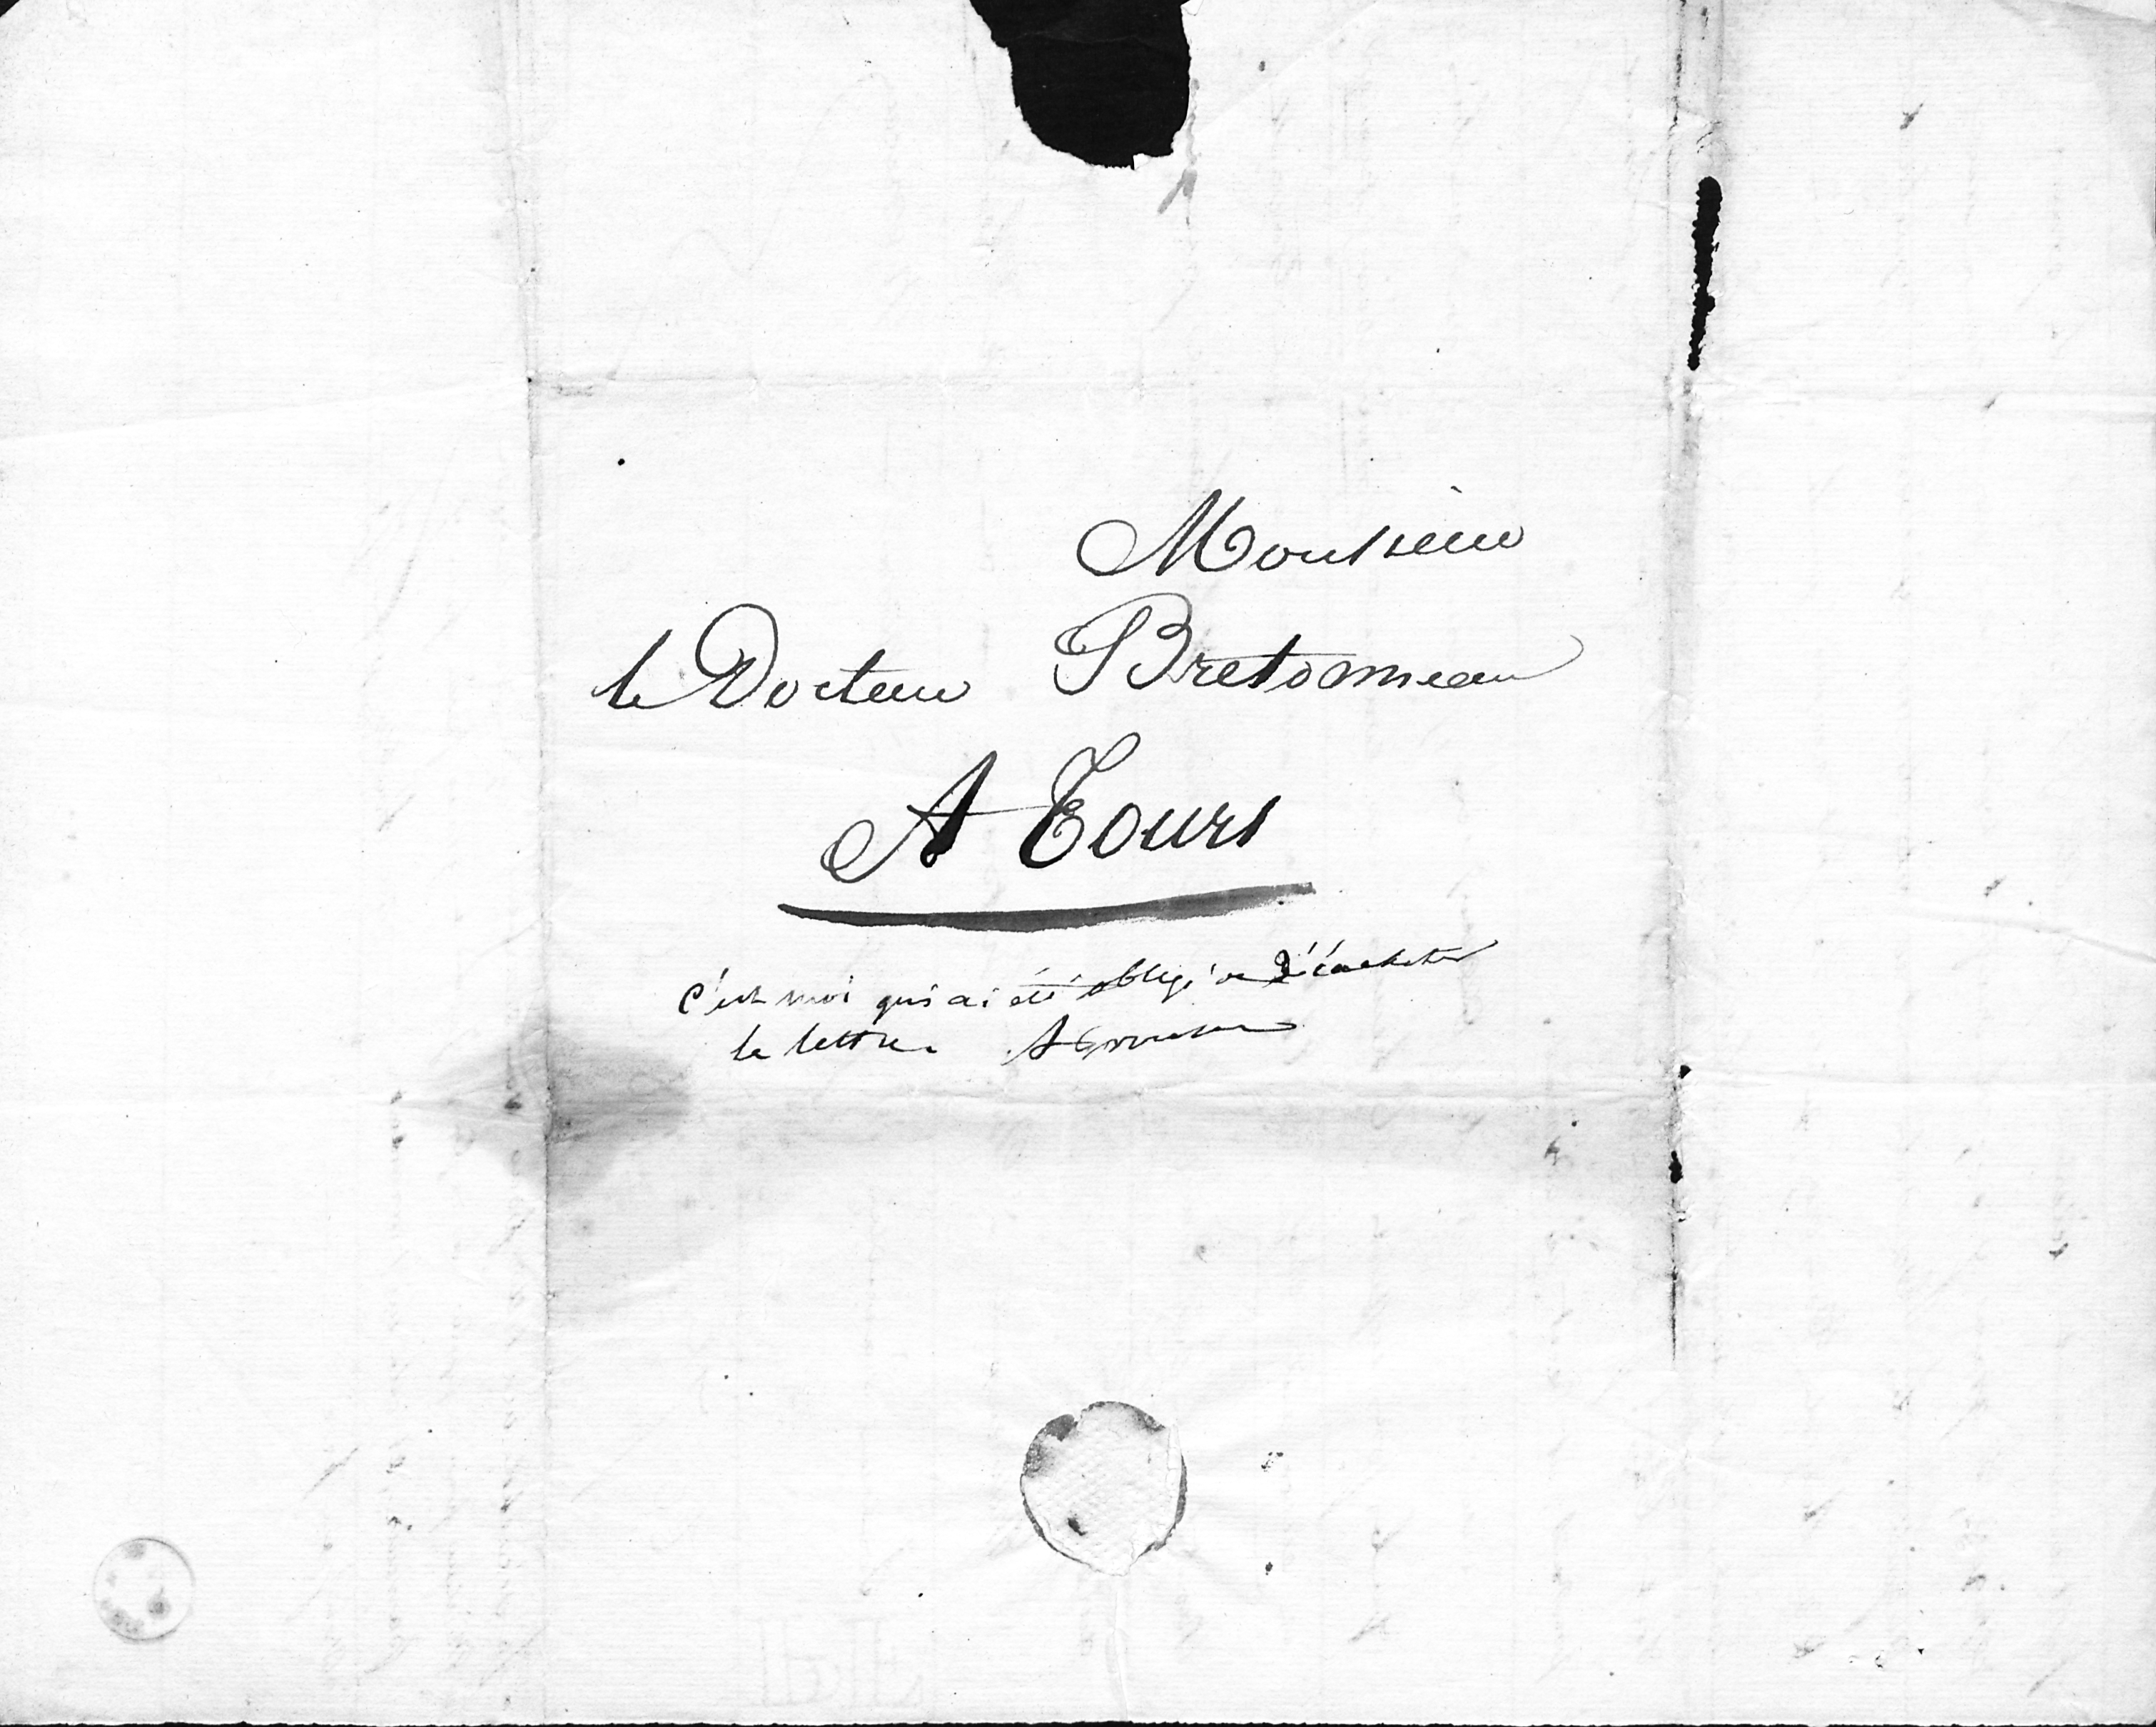 Monsieur
le Docteur Bretonneau
A Tours
c'est moi qui ai été obligé de décacheter
la lettre. A Trousseau